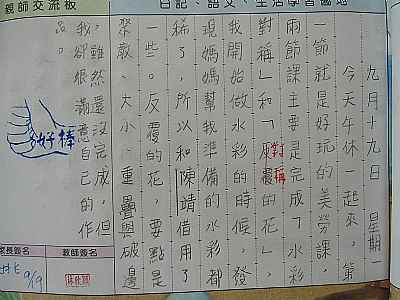 日記、語文、生活學習園地
親師交流板
九月十九日 星期一
今天午休一起來，第
一節就是好玩的美勞課，
兩節課主要是完成「水彩
對稱」和「反覆的花」，
對稱
我開始做水彩的時候，發
現媽媽幫我準備的水彩都
稀了，所以和陳靖借用了
一些。反覆的花，要點是
聚散、大小、重疊與破邊
。雖然還沒完成，但
我卻很滿意自己的作
品。
好棒
家長簽名
教師簽名
9/19